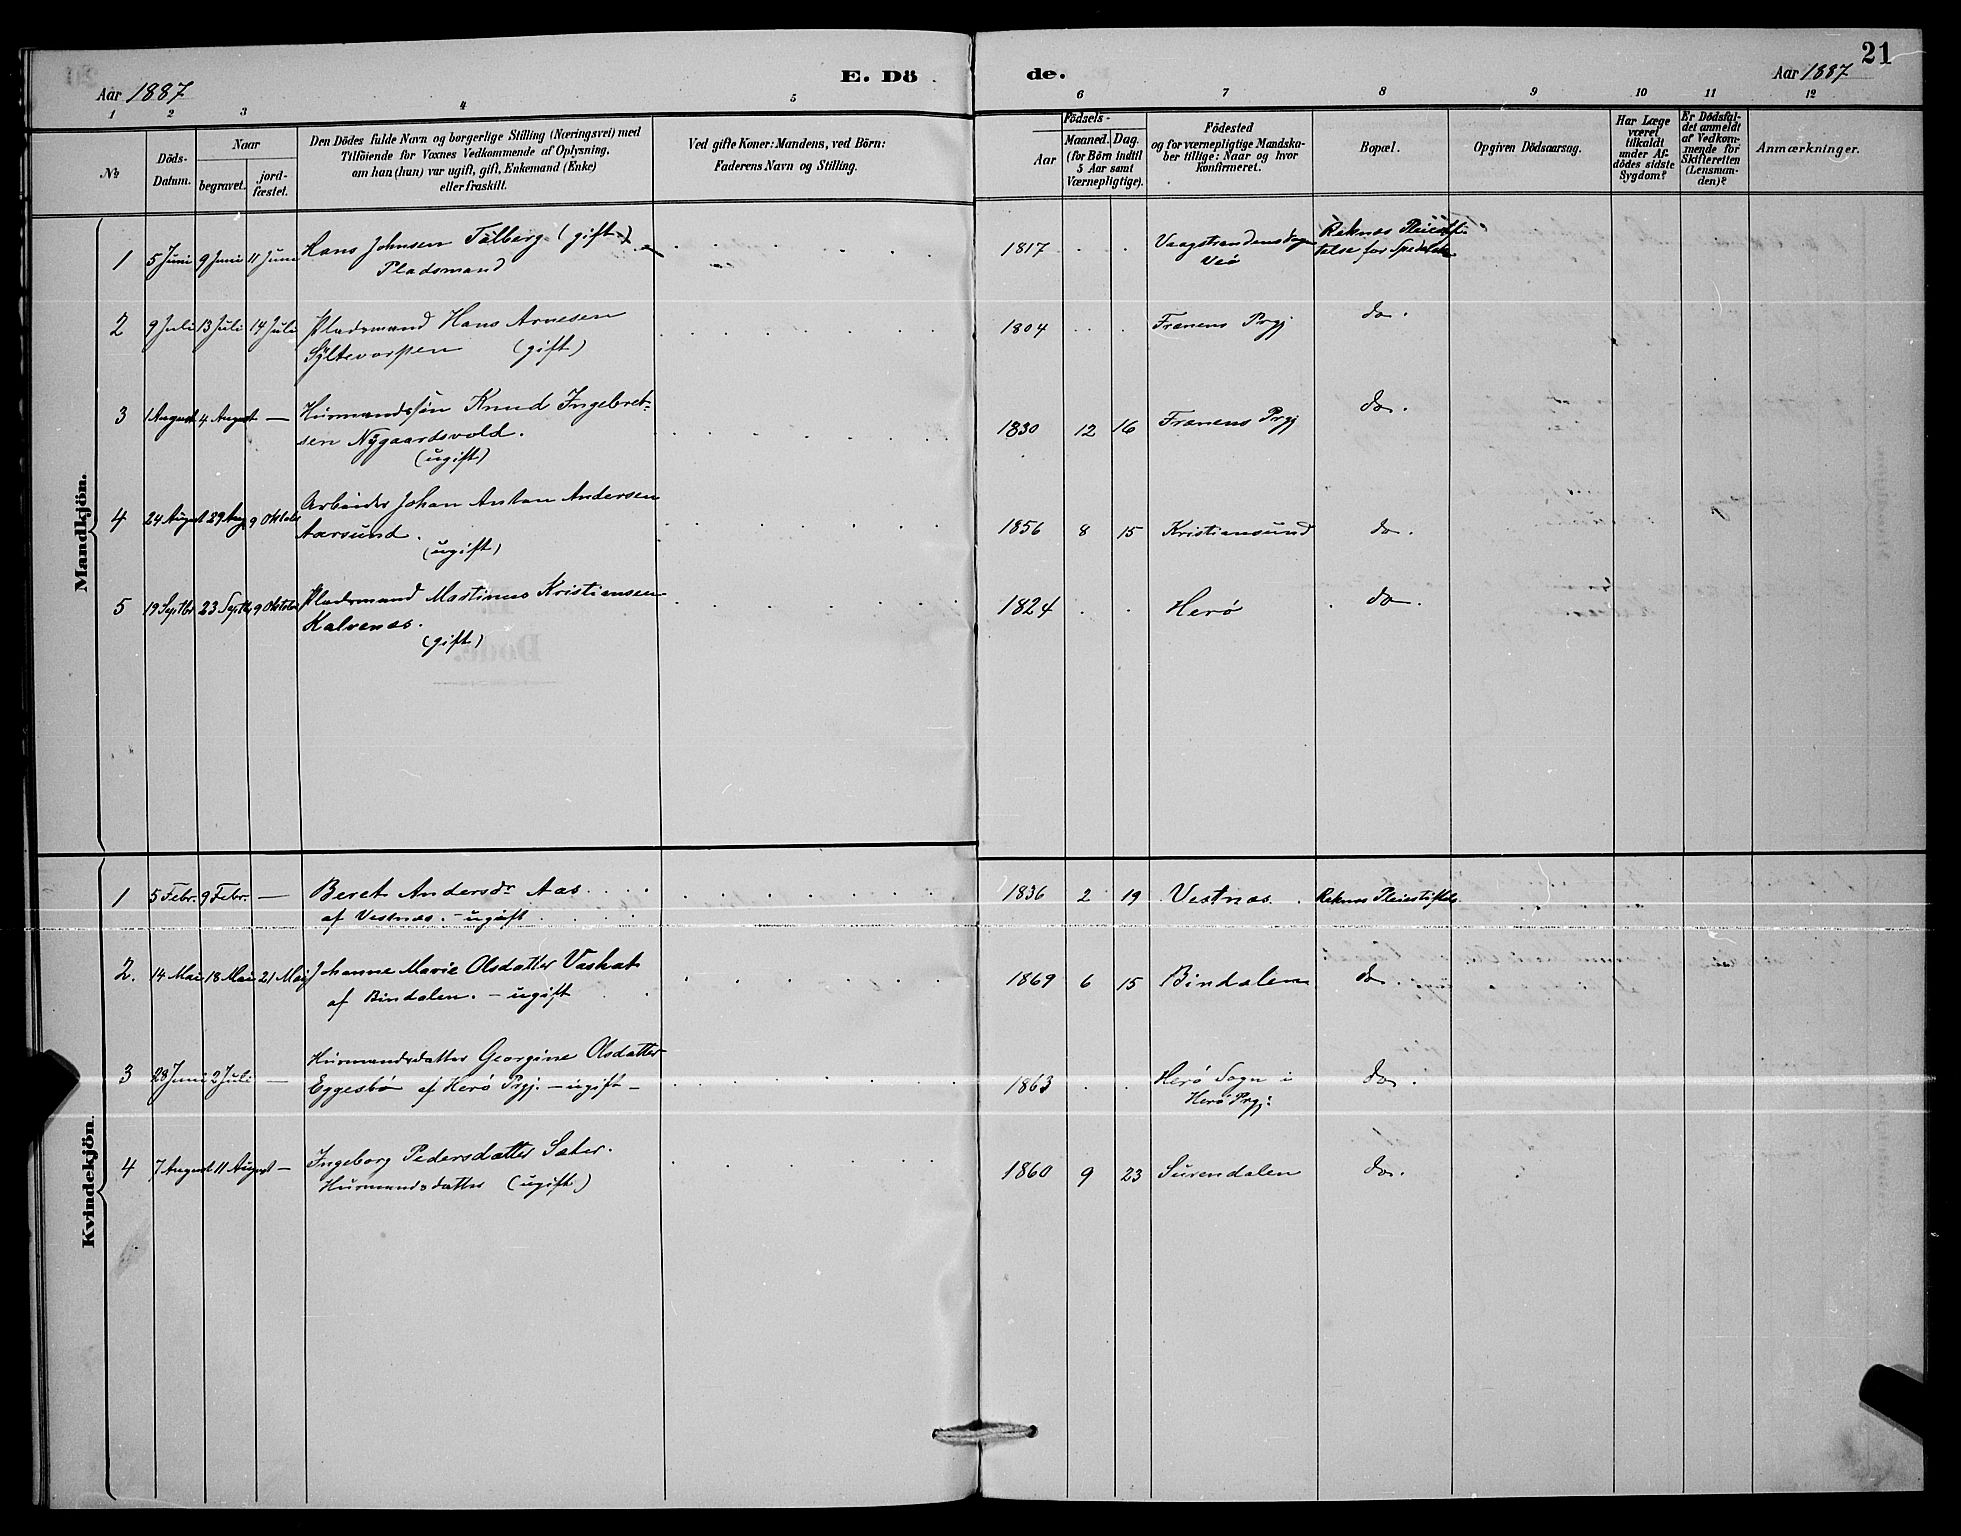 21
Aar 1887
E. Dö
de.
Aar 1887
1 2 3 4 5 6 7 8 9 10 11 12
No
Döds-
Datum.
Naar
begravet.
jord-
fæstet.
Den Dödes fulde Navn og borgerlige Stilling (Næringsvei) med
Tilföiende for Voxnes Vedkommende af Oplysning,
om han (hun) var ugift, gift, Enkemand (Enke)
eller fraskilt.
Ved gifte Koner: Mandens, ved Börn:
Faderens Navn og Stilling.
Födsels-
Aar
Maaned.
Dag.
(for Börn indtil
5 Aar samt
Værnepligtige).
Födested
og for værnepligtige Mandska-
ber tillige: Naar og hvor
konfirmeret.
Bopæl.
Opgiven Dödsaarsag.
Har Læge
været
tilkaldt
under Af-
dödes sidste
Sygdom?
Er Dödsfal-
det anmeldt
af Vedkom-
mende for
Skifteretten
(Lensman-
den)?
Anmærkninger.
Mandkjön.
1 5 Juni 9 Juni 11 Juni Hans Johnsen Tålberg (gift) 1817 Reknæs Pleiestif-
Pladsmand Veø telse for Spedalske
2 9 Juli 13 Juli 14 Juli Pladsmand Hans Arnesen 1804 Frænens Prgj do.
Syltevorpen (gift)
3 1 August 4 August — Husmandssøn Knud Ingebret- 1830 12 16 Frænens Prgj do.
sen Nygaardsvold.
(ugift)
4 24 August 29 Aug. 9 Oktober Arbeider Johan Anton Andersen 1856 8 15 Kristiansund do.
Aarsund.
(ugift)
5 19 Septbr 23 Septb. 9 Oktober Pladsmand Martinus Kristiansen 1824 Herø do.
Kalvenæs.
(gift)
Kvindekjön.
1 5 Febr. 9 Febr. — Beret Andersdr Aas 1836 2 19 Vestnæs. Reknæs Pleiestiftels.
af Vestnæs. – ugift
2. 14 Mai 18 Mai 21 Maj Johanne Marie Olsdatter Vaskat 1869 6 15 Bindalen do.
af Bindalen. – ugift
3 28 Juni 2 Juli — Husmandsdatter Georgine Olsdatter 1863 Herø Sogn i do.
Eggesbø af Herø Prgj. – ugift – Herø Prgj:
4 7 August 11 August – Ingeborg Pedersdatter Sæter. 1860 9 23 Surendalen do.
Husmandsdatter (ugift)